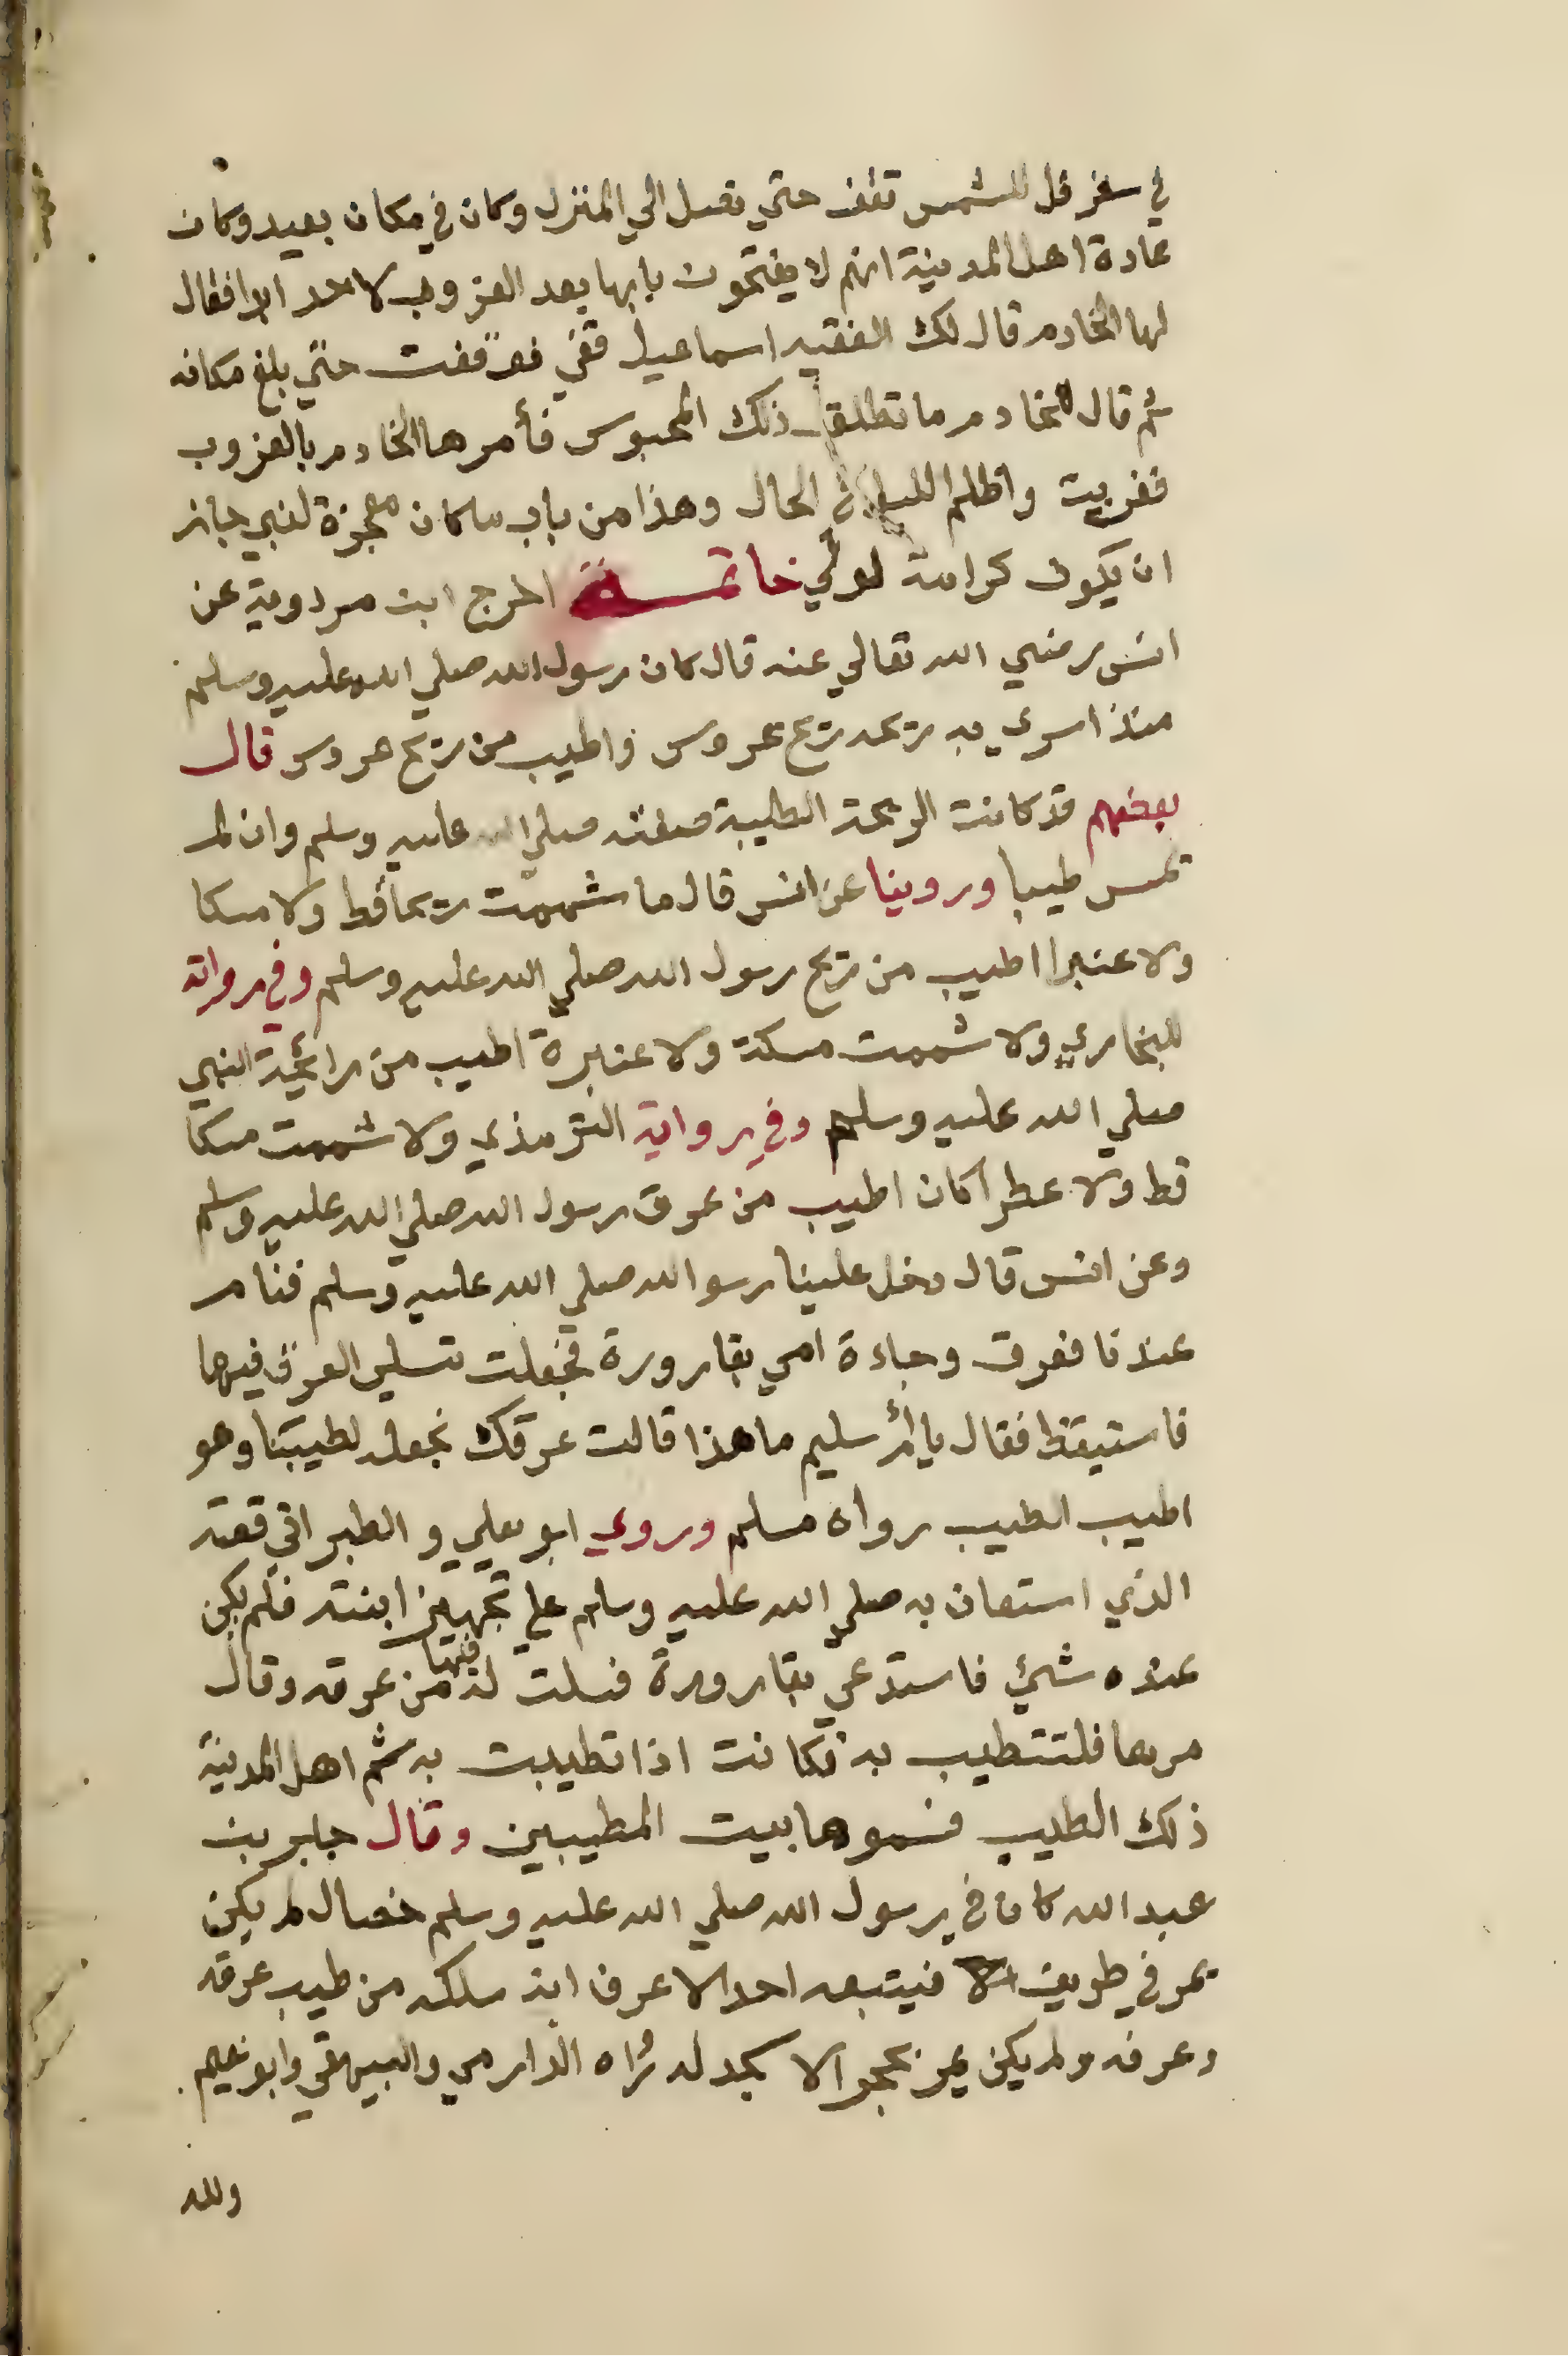 في سفر قل للشمس تقف حتي نصل الي المنزل وكان في مكان بعيد وكان
عادة اهل المدينة انهم لا يفتحون بابها بعد الغروب لاحد ابدا فقال
لها الخادم قال لك الفقيه اسماعيل قفي فوقفت حتي بلغ مكانه
ثم قال للخادم ما تطلق ذلك المحبوس فأمرها الخادم بالغروب
فغربت واظلم الليل في الحال وهذا من باب ما كان معجزة لنبي جاز
ان يكون كرامة لولي خاتمـــة اخرج ابن مردوية عن
انس رضي الله تعالي عنه قال كان رسول الله صلي الله عليه وسلم
منذ اسري به ريحه ريح عروس واطيب من ريح عروس قال
بعضهم قد كانت الريحة الطيبة صفته صلي الله عليه وسلم وان لم
تمس طيبا وروينا عن انس قال ما شممت ريحا قط ولا مسكا
ولا عنبرا اطيب من ريح رسول الله صلي الله عليه وسلم وفي رواية
للبخاري ولا شممت مسكة ولا عنبرة اطيب من رائحة النبي
صلي الله عليه وسلم وفي رواية الترمذي ولا شممت مسكا
قط ولا عطرا كان اطيب من عرق رسول الله صلي الله عليه وسلم
وعن انس قال دخل علينا رسو الله صلي الله عليه وسلم فنام
عندنا فعرق وجاءة امي بقارورة فجعلت تسلي العرق فيها
فاستيقظ فقال يا ام سليم ما هذا قالت عرقك نجعله لطيبنا وهو
اطيب الطيب رواه مسلم وروي ابو يعلي و الطبراني قصة
الذي استعان به صلي الله عليه وسلم علي تجهيز ابنته فلم يكن
عنده شيئ فاستدعي بقارورة فسلت له فيها من عرقه وقال
مرها فلتتطيب به فكانت اذا تطيبت به شم اهل المدينة
ذلك الطيب فسموها بيت المطيبين وقال جابر بن
عبد الله كان في رسول الله صلي الله عليه وسلم خصال لم يكن
يمر في طريق فيتبعه احد الا عرف انه سلكه من طيب عرقه
وعرفه ولم يكن يمر بحجر الا سجد له رواه الدارمي والبيهقي وابو نعيم
ولله